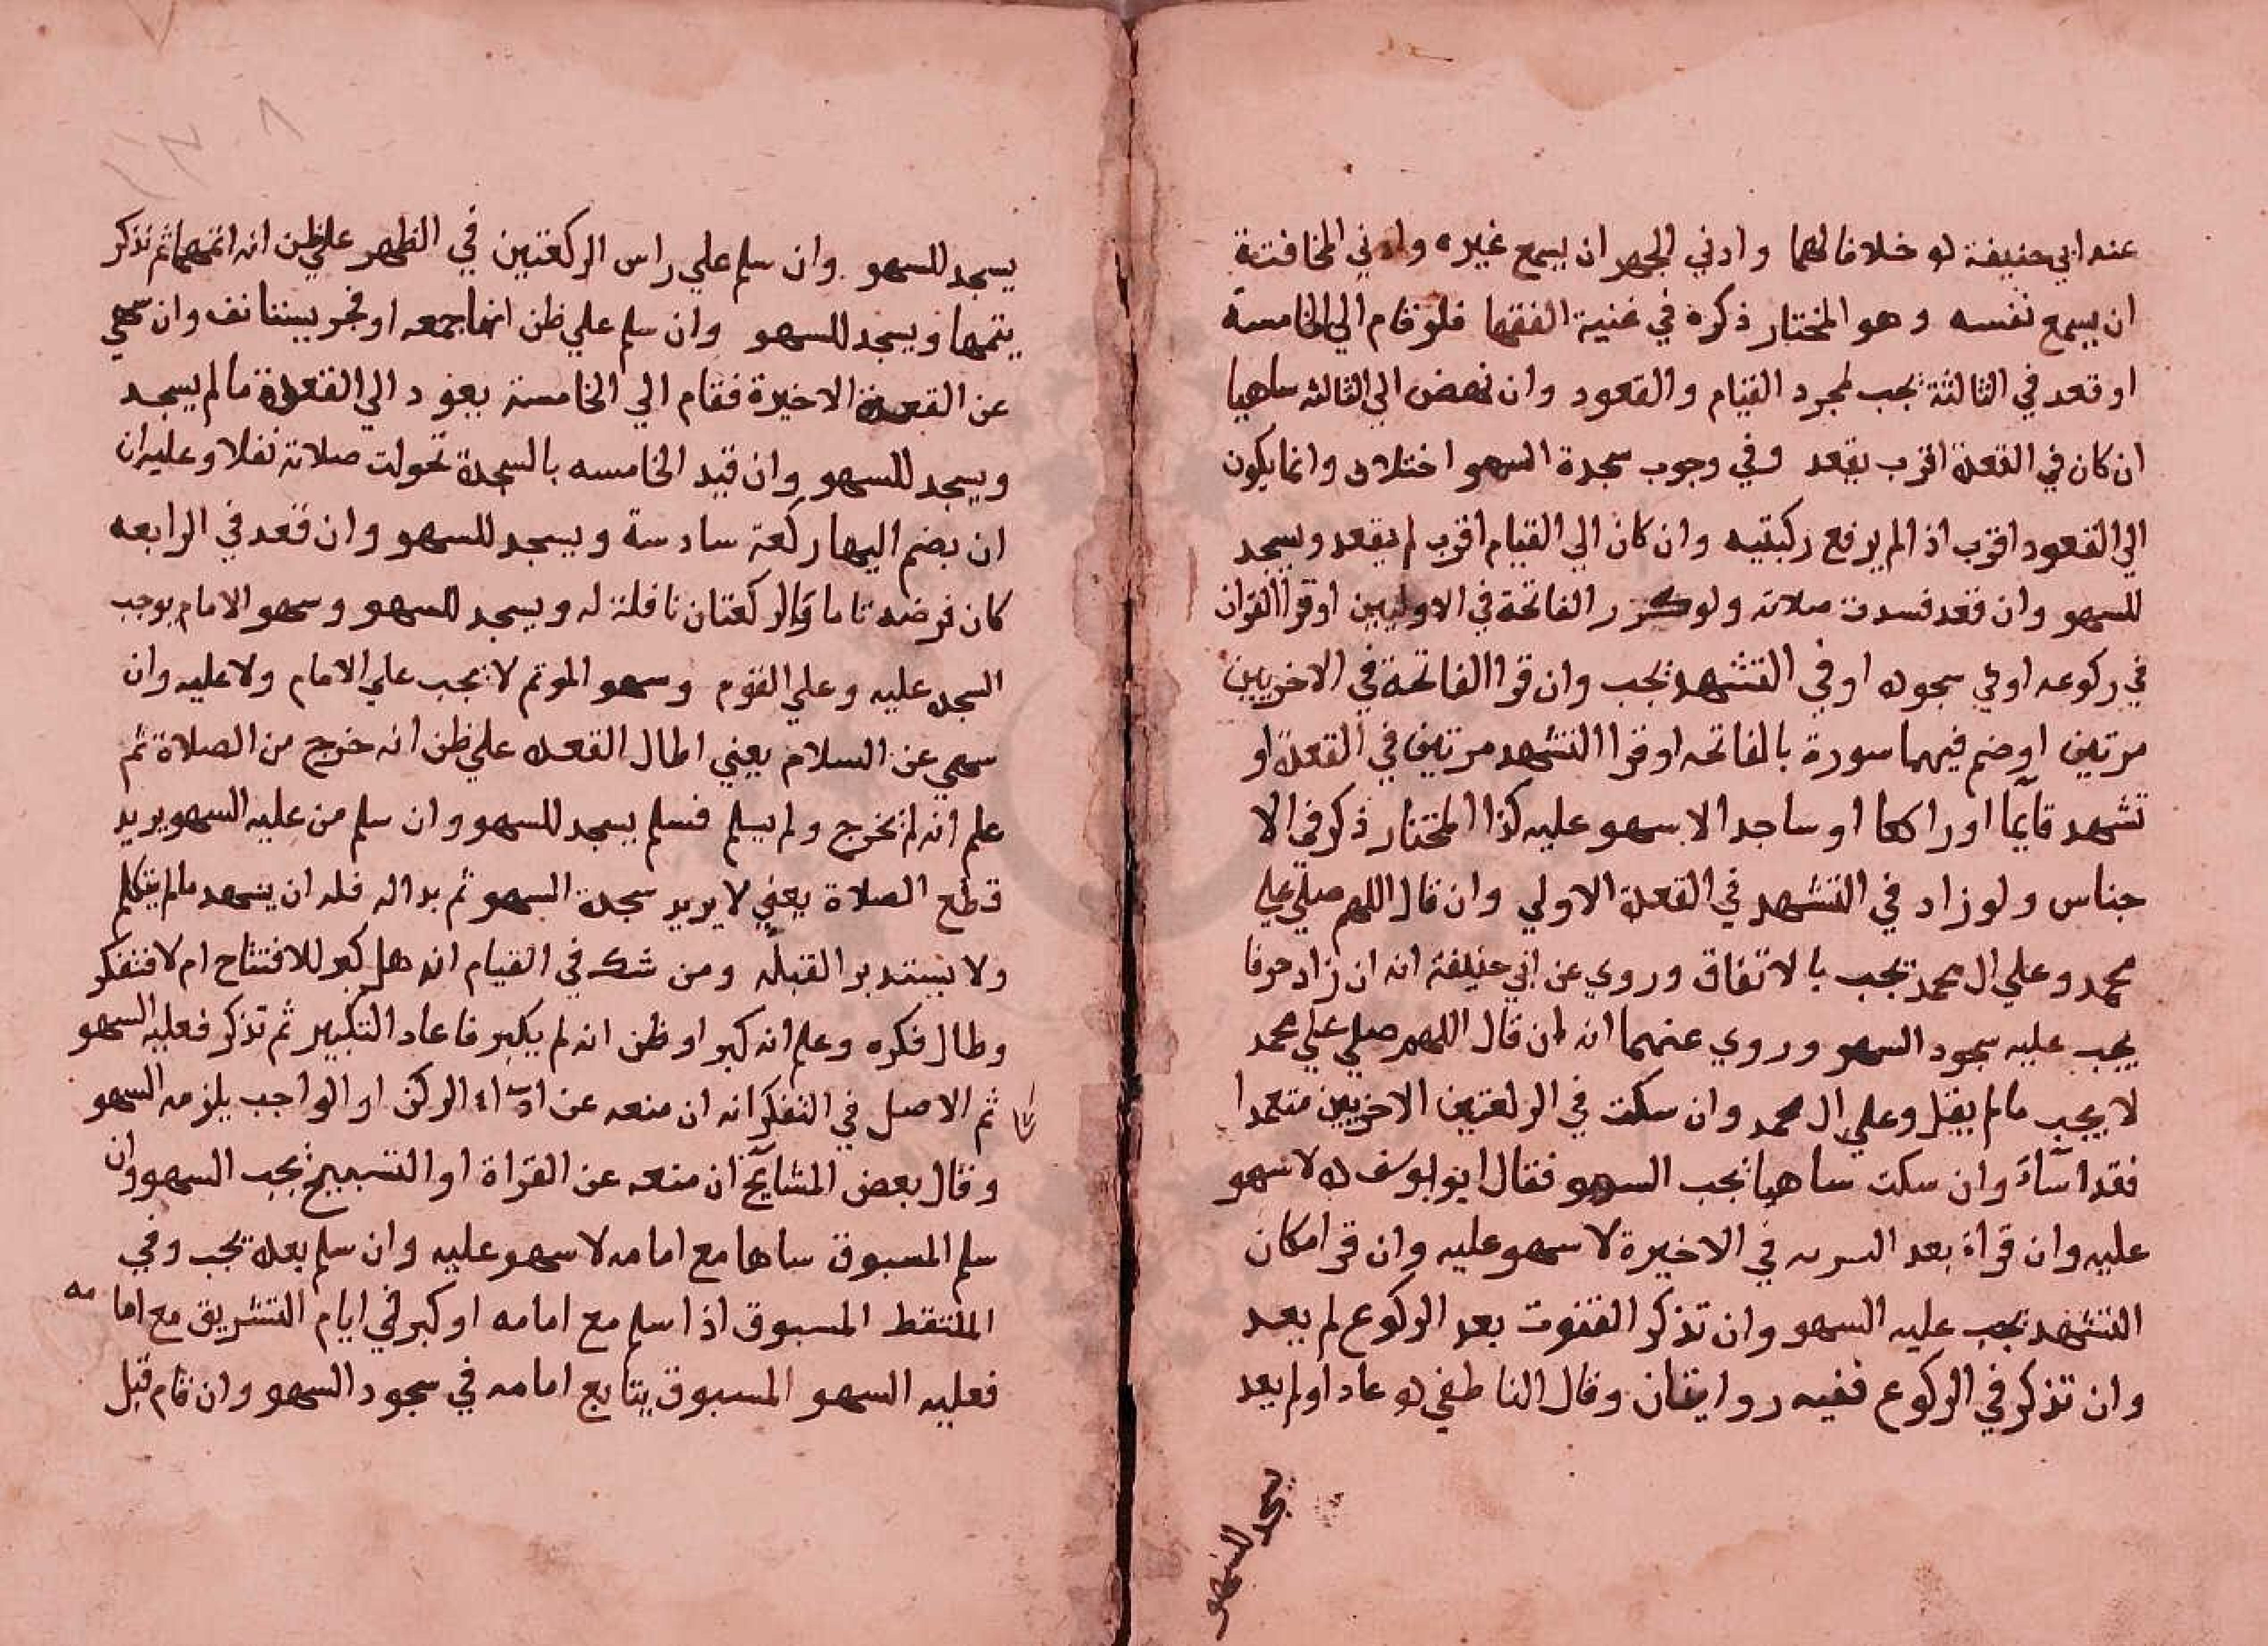 عند ابي حنيفة له خلافا لهما وادني الجهر ان يسمع غيره وادني المخافتة
ان يسمع نفسه وهو المختار ذكره في غنية الفقها فلو قام الي الخامسة
او قعد في الثالثة تجب لمجرد القيام والقعود وان نهض الي الثالثه ساهيا
ان كان في القعدة اقرب يقعد وفي وجوب سجدة السهو اختلاف وانما يكون
الي القعود اقرب اذ الم يرفع ركبتيه وان كان الي القيام اقرب لم يقعد ويسجد
للسهو وان قعد فسدت صلاته ولو كرر الفاتحة في الاوليين او قرا القران
في ركوعه او في سجوده او في التشهد تجب وان قرا الفاتحة في الاخريين
مرتين او ضم فيهما سورة بالفاتحه او قرا التشهد مرتين في القعدة او
تشهد قايما او راكعا او ساجد الا سهو عليه كذا المختار ذكر في الا
جناس ولو زاد في التشهد في القعدة الاولي وان قال اللهم صلي علي
محمد وعلي ال محمد تجب بالاتفاق وروي عن ابي حنيفة انه ان زاد حرفا
يجب عليه سجود السهو وروي عنهما انه ان قال اللهم صلي علي محمد
لا يجب مالم يقل وعلي ال محمد وان سكت في الركعتين الاخريين متعمدا
فقد اساء وان سكت ساهيا تجب السهو فقال ابو يوسف له لا سهو
عليه وان قراة بعد السرىه في الاخيرة لا سهو عليه وان قرا مكان
التشهد تجب عليه السهو وان تذكر القنوت بعد الركوع لم يعد
وان تذكر في الركوع ففيه روايتان وقال الناطفي له عاد او لم يعد
يسجد للسهو
يسجد للسهو وان سلم علي راس الركعتين في الظهر علي ظن انه اتمها ثم تذكر
يتمها ويسجد للسهو وان سلم علي ظن انها جمعه او فجر يستانف وان سهي
عن القعدة الاخيرة فقام الي الخامسة يعود الي القعدة مالم يسجد
ويسجد للسهو وان قيد الخامسه بالسجدة تحولت صلاته نفلا وعليه ان
ان يضم اليها ركعة سادسة ويسجد للسهو وان قعد في الرابعه
كان فرضه تاما والركعتان نافلة له ويسجد للسهو وسهو الامام يوجب
السجده عليه وعلي القوم وسهو الموتم لا تجب علي الامام ولا عليه وان
سهي عن السلام يعني اطال القعده علي ظن انه خرج من الصلاة ثم
علم انه لم يخرج ولم يسلم فسلم يسجد للسهو وان سلم من عليه السهو يريد
قطع الصلاة يعني لا يريد سجدة السهو ثم بدا له فله ان يسهد مالم يتكلم
ولا يستدبر القبله ومن شك في القيام انه هل كبر للافتتاح ام لا فتفكر
وطال فكره وعلم انه كبر او ظن انه لم يكبر فاعاد التكبير ثم تذكر فعليه السهو
ثم الاصل في التفكر انه ان منعه عن اداء الركن او الواجب يلزمه السهو
وقال بعض المشايخ ان منعه عن القراة او التسبيح يجب السهو وان
سلم المسبوق ساها مع امامه لا سهو عليه وان سلم بعده تجب وفي
الملتقط المسبوق اذا سلم مع امامه او كبر في ايام التشريق مع امامه
فعليه السهو المسبوق يتابع امامه في سجود السهو وان قام قبل